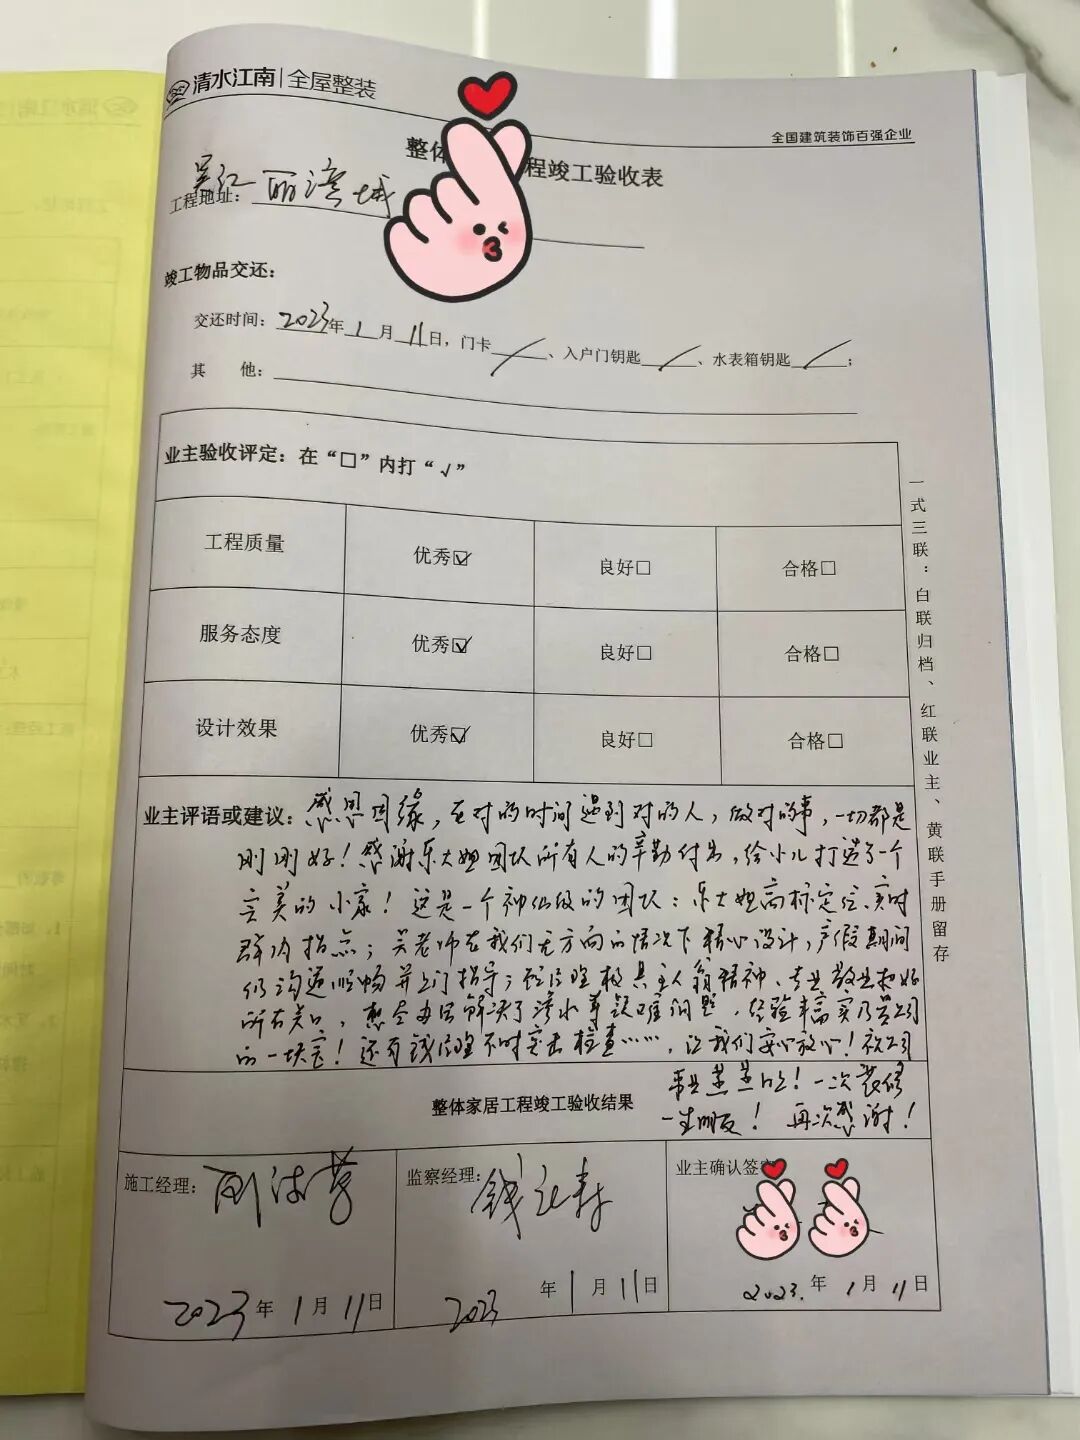 清水江南|全屋整装
全国建筑装饰百强企业
整体 程竣工验收表
工程地址: 吴江 丽湾城
竣工物品交还:
交还时间: 2023年 1 月 11 日, 门卡 / 、入户门钥匙 / 、水表箱钥匙 / ;
其 他:
业主验收评定: 在“□”内打“√”
工程质量 优秀☑ 良好□ 合格□
服务态度 优秀☑ 良好□ 合格□
设计效果 优秀☑ 良好□ 合格□
一式三联: 白联归档、红联业主、黄联手册留存
业主评语或建议: 感恩因缘, 在对的时间遇到对的人, 做对的事, 一切都是
刚刚好! 感谢乐大姐团队所有人的辛勤付出, 给小儿打造了一个
完美的小家! 这是一个神仙级的团队: 乐大姐高标定位、实时
群内指点; 吴老师在我们无方向的情况下精心设计, 产假期间
仍沟通顺畅并上门指导; 经理极具主人翁精神、专业敬业把好
所有关口, 想尽办法解决了渗水等疑难问题, 经验丰富实乃贵公司
的一块宝! 还有钱经理不时突击检查……, 让我们安心放心! 祝公司
事业蒸蒸日上! 一次装修
整体家居工程竣工验收结果
一生朋友! 再次感谢!
施工经理:
监察经理: 钱
业主确认签
2023 年 1 月 11 日
2023 年 1 月 11 日
2023. 年 1 月 11 日